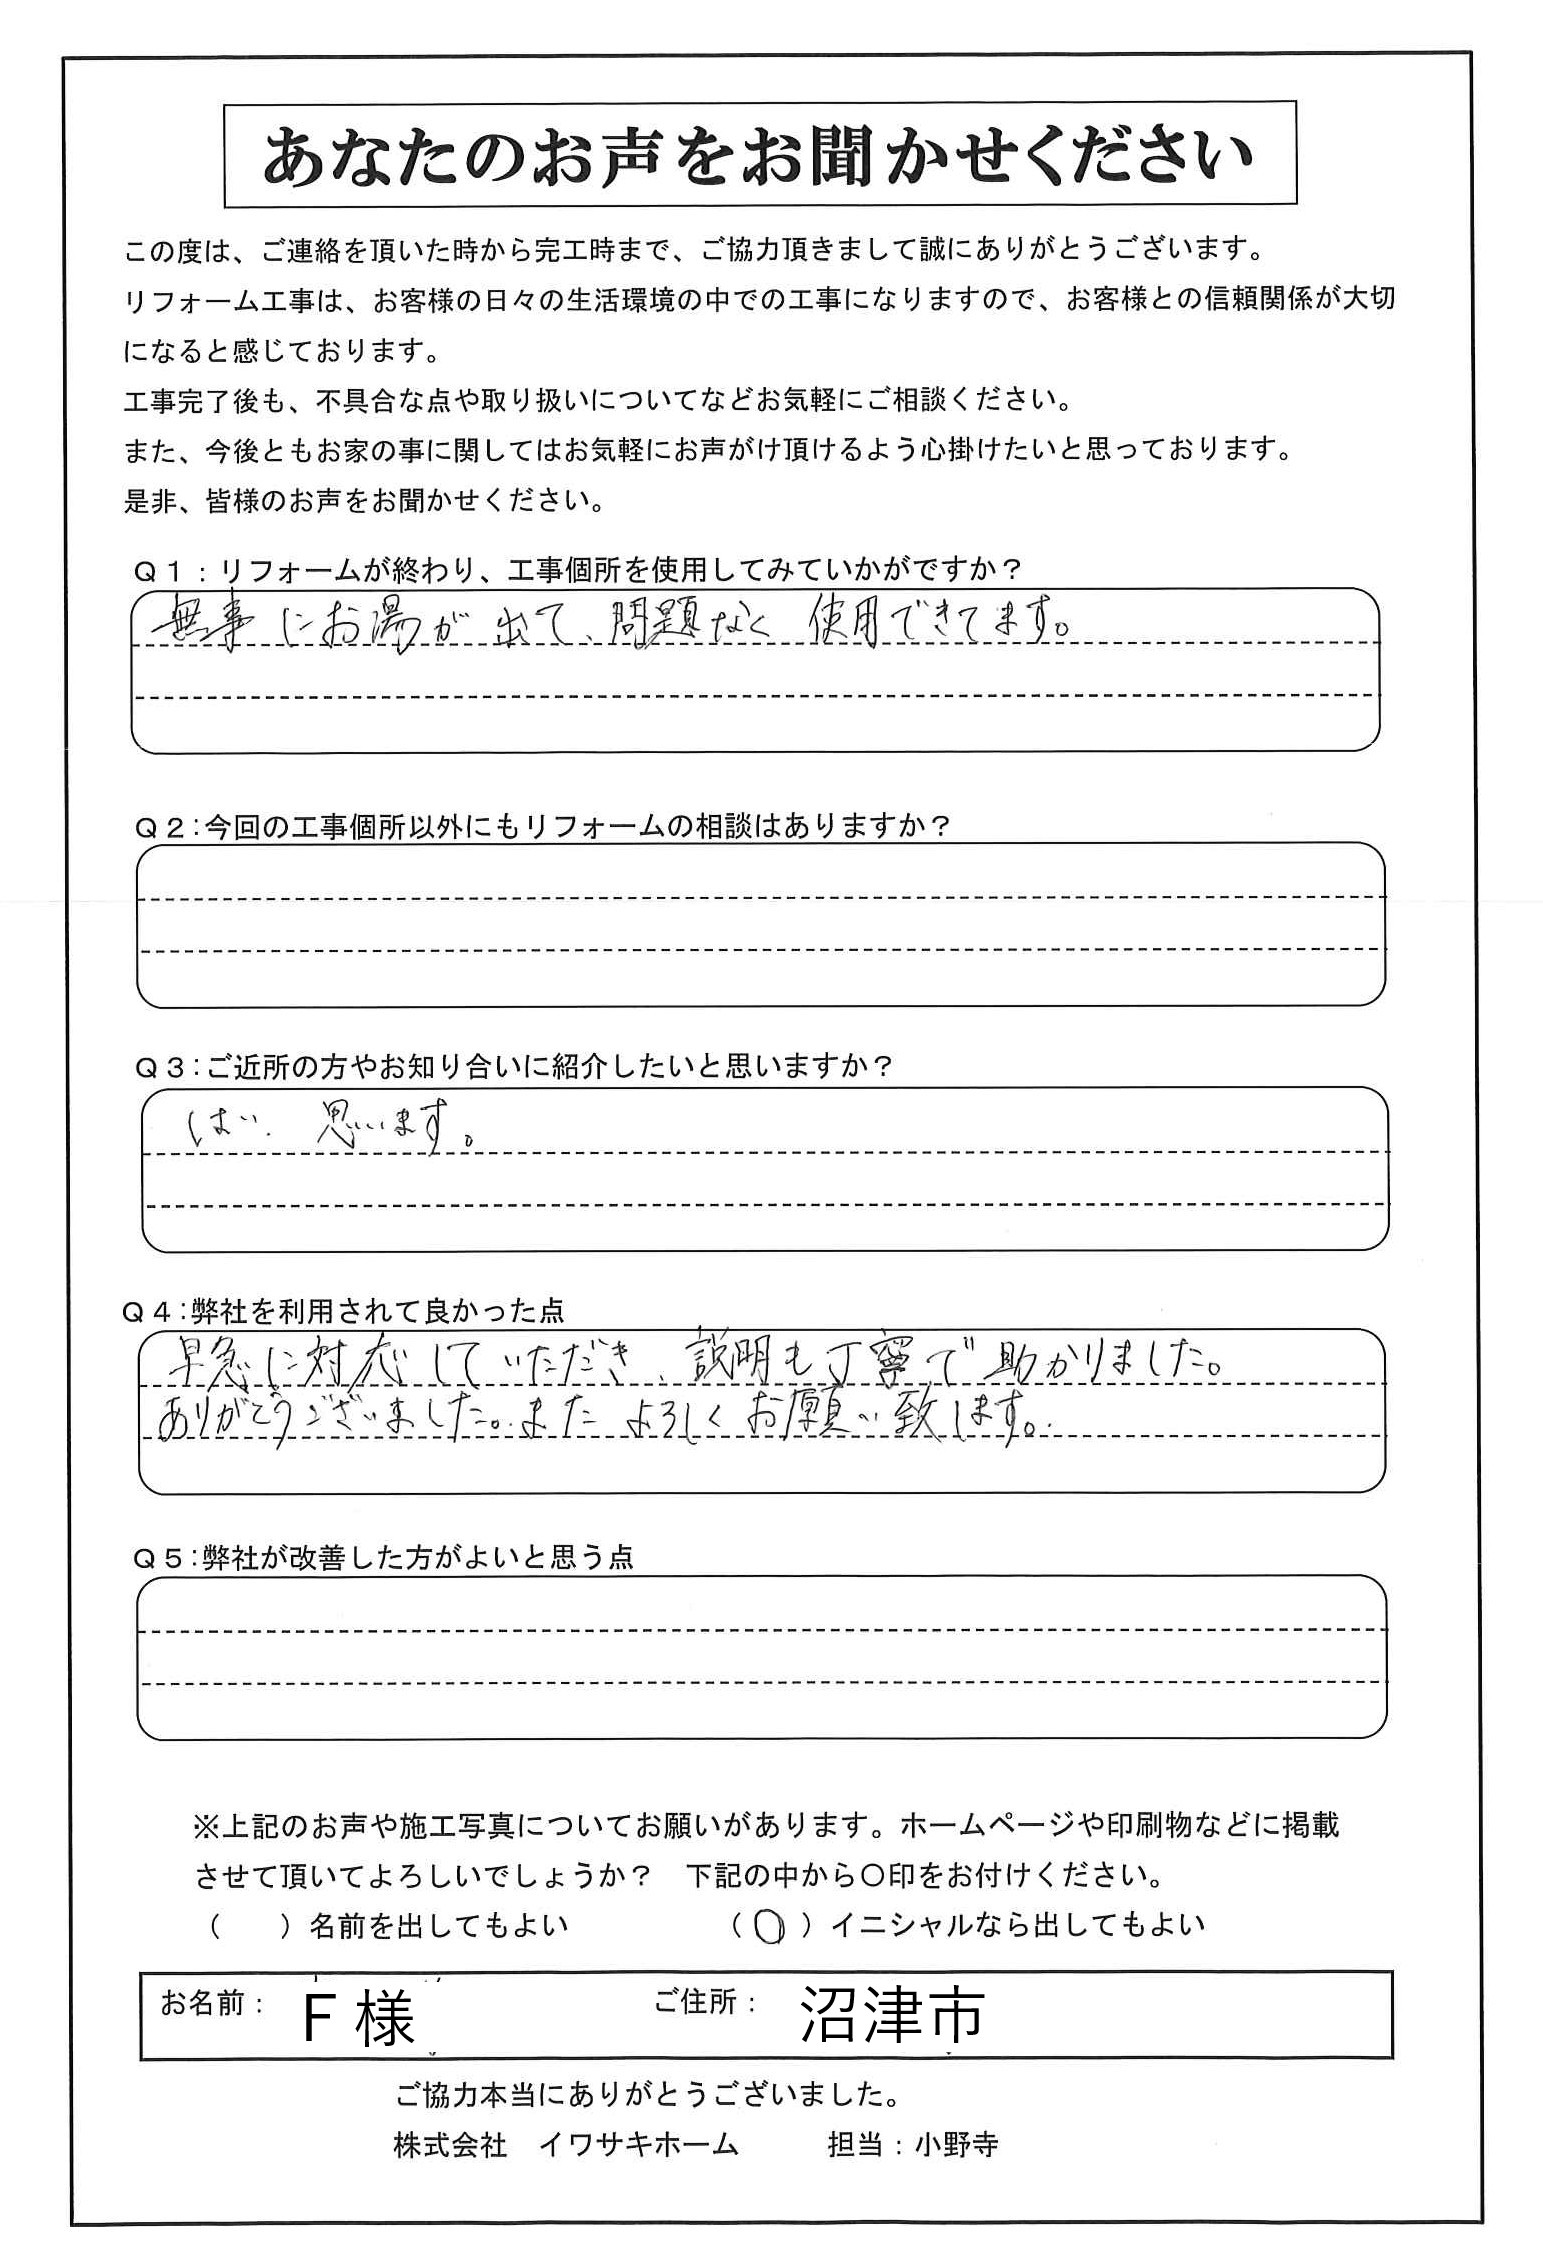 あなたのお声をお聞かせください
この度は、ご連絡を頂いた時から完工時まで、ご協力頂きまして誠にありがとうございます。
リフォーム工事は、お客様の日々の生活環境の中での工事になりますので、お客様との信頼関係が大切
になると感じております。
工事完了後も、不具合な点や取り扱いについてなどお気軽にご相談ください。
また、今後ともお家の事に関してはお気軽にお声がけ頂けるよう心掛けたいと思っております。
是非、皆様のお声をお聞かせください。
Q1：リフォームが終わり、工事個所を使用してみていかがですか？
無事にお湯が出て、問題なく使用できてます。
Q2：今回の工事個所以外にもリフォームの相談はありますか？
Q3：ご近所の方やお知り合いに紹介したいと思いますか？
はい、思います。
Q4：弊社を利用されて良かった点
早急に対応していただき、説明も丁寧で助かりました。
ありがとうございました。またよろしくお願い致します。
Q5：弊社が改善した方がよいと思う点
※上記のお声や施工写真についてお願いがあります。ホームページや印刷物などに掲載
させて頂いてよろしいでしょうか？　下記の中から〇印をお付けください。
（　　）名前を出してもよい　（〇）イニシャルなら出してもよい
お名前：F様　ご住所：沼津市
ご協力本当にありがとうございました。
株式会社　イワサキホーム　担当：小野寺